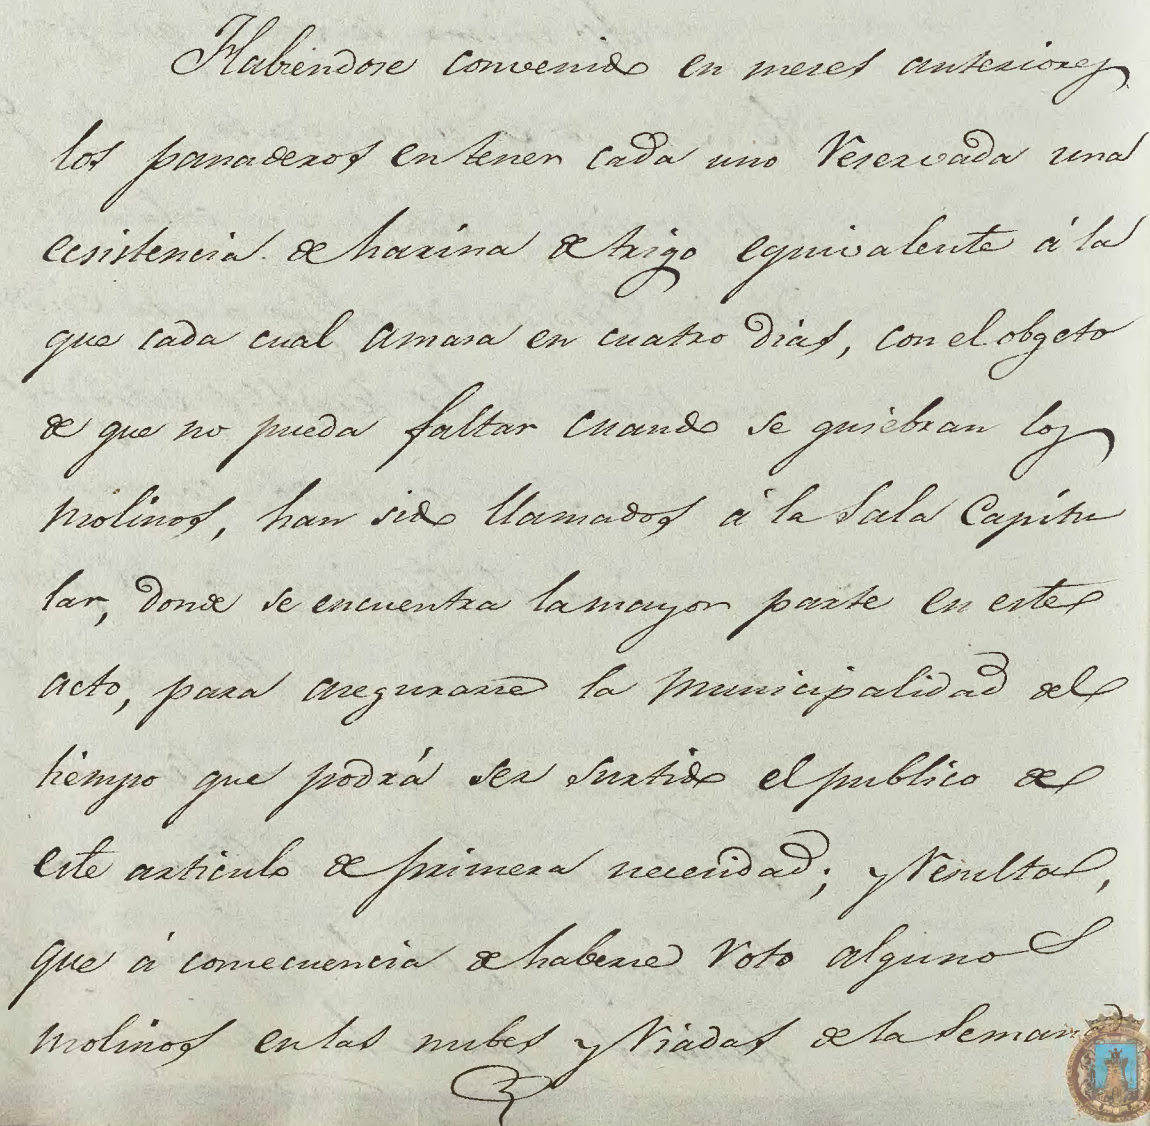 Habiendose convenido en meses anteriores
los panaderos en tener cada uno reservada una
ecsistencia de harina de trigo equivalente á la
que cada cual amasa en cuatro dias, con el obgeto
de que no pueda faltar cuando se quiebran los
molinos, han sido llamados á la Sala Capitu
lar, donde se encuentra la mayor parte en este
acto, para asegurarse la Municipalidad del
tiempo que podrá ser surtido el publico de
este articulo de primera necesidad; y resulta,
que á consecuencia de haberse roto algunos
molinos en las nubes y riadas de la Semana